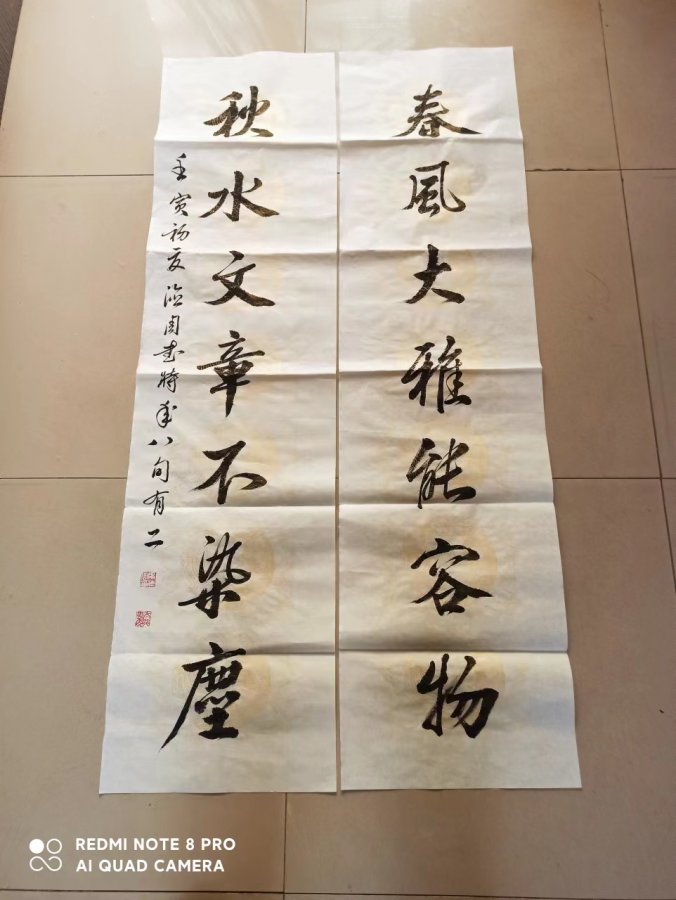 春風大雅能容物
秋水文章不染塵
壬寅初夏 周 時年八旬有二
REDMI NOTE 8 PRO
AI QUAD CAMERA